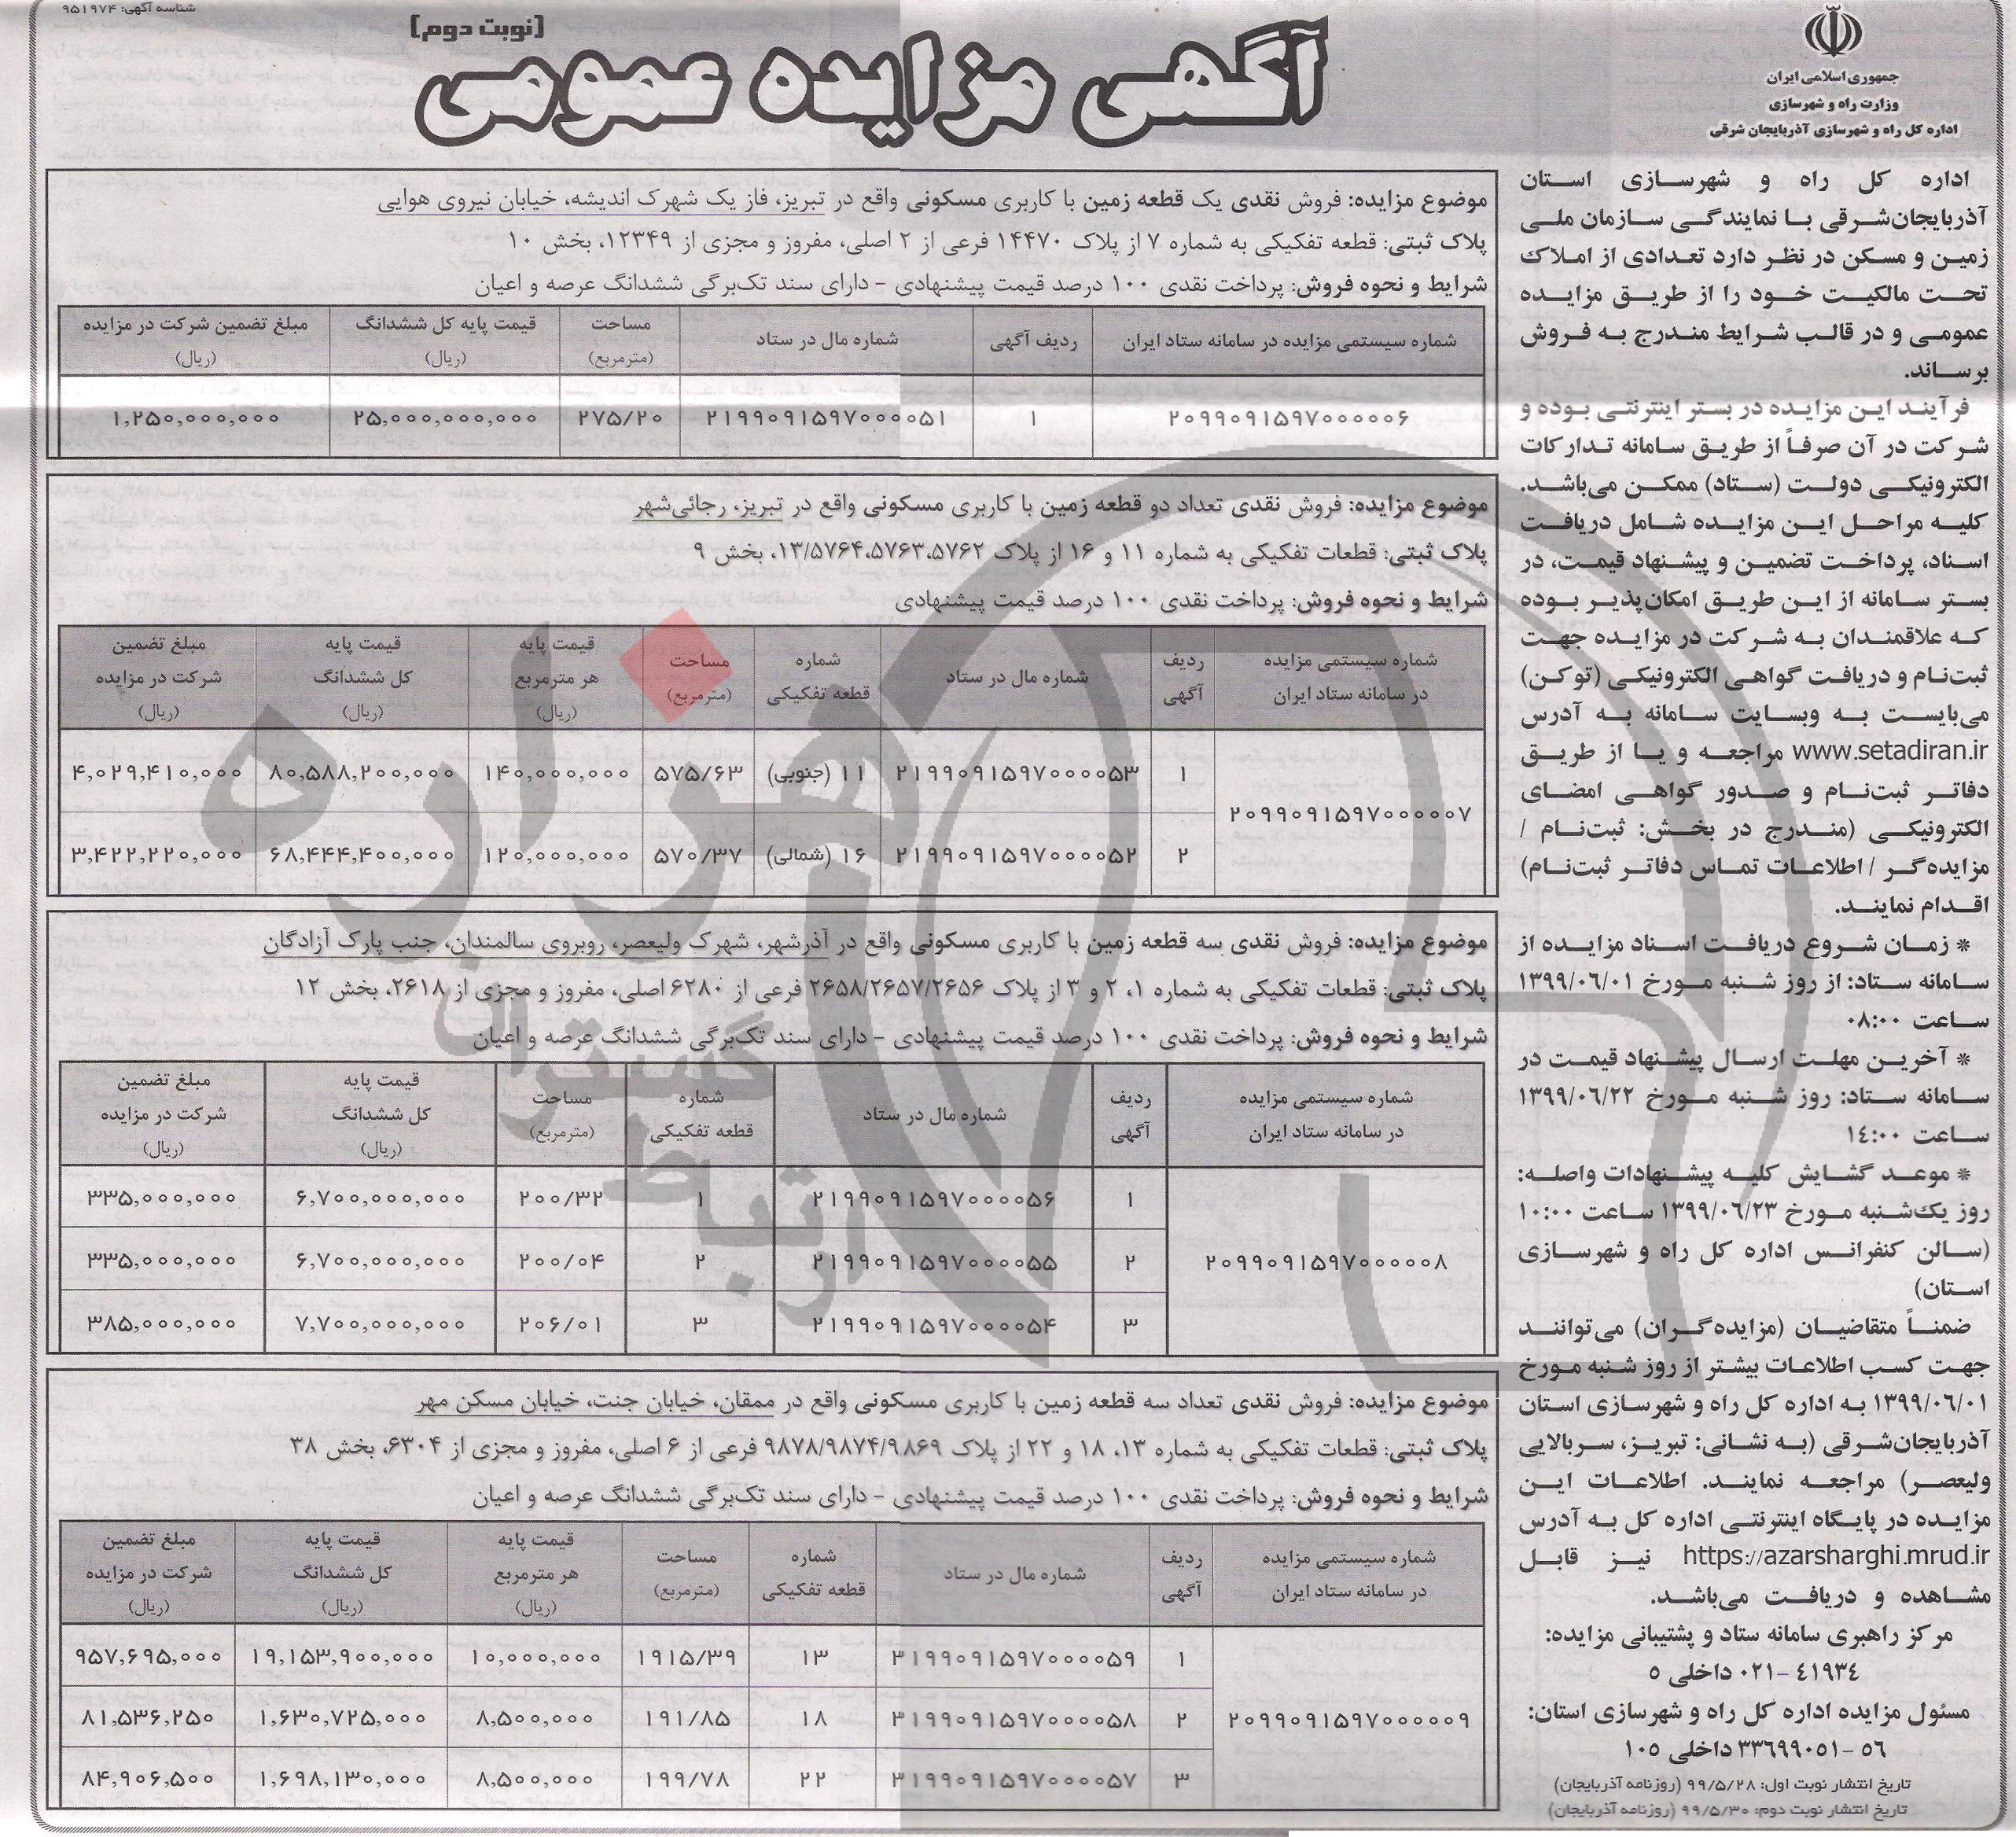 شناسه آگهی: ۹۵۱۹۷۴
جمهوری اسلامی ایران
وزارت راه و شهرسازی
اداره کل راه و شهرسازی آذربایجان شرقی
(نوبت دوم)
آگهی مزایده عمومی
اداره کل راه و شهرسازی استان
آذربایجان‌شرقی با نمایندگی سازمان ملی
زمین و مسکن در نظر دارد تعدادی از املاک
تحت مالکیت خود را از طریق مزایده
عمومی و در قالب شرایط مندرج به فروش
برساند.
فرآیند این مزایده در بستر اینترنتی بوده و
شرکت در آن صرفاً از طریق سامانه تدارکات
الکترونیکی دولت (ستاد) ممکن می‌باشد.
کلیه مراحل این مزایده شامل دریافت
اسناد، پرداخت تضمین و پیشنهاد قیمت، در
بستر سامانه از این طریق امکان‌پذیر بوده
که علاقمندان به شرکت در مزایده جهت
ثبت‌نام و دریافت گواهی الکترونیکی (توکن)
می‌بایست به وبسایت سامانه به آدرس
www.setadiran.ir مراجعه و یا از طریق
دفاتر ثبت‌نام و صدور گواهی امضای
الکترونیکی (مندرج در بخش: ثبت‌نام /
مزایده‌گر / اطلاعات تماس دفاتر ثبت‌نام)
اقدام نمایند.
* زمان شروع دریافت اسناد مزایده از
سامانه ستاد: از روز شنبه مورخ ۱۳۹۹/۰۶/۰۱
ساعت ۰۸:۰۰
* آخرین مهلت ارسال پیشنهاد قیمت در
سامانه ستاد: روز شنبه مورخ ۱۳۹۹/۰۶/۲۲
ساعت ۱۴:۰۰
* موعد گشایش کلیه پیشنهادات واصله:
روز یک‌شنبه مورخ ۱۳۹۹/۰۶/۲۳ ساعت ۱۰:۰۰
(سالن کنفرانس اداره کل راه و شهرسازی
استان)
ضمناً متقاضیان (مزایده‌گران) می‌توانند
جهت کسب اطلاعات بیشتر از روز شنبه مورخ
۱۳۹۹/۰۶/۰۱ به اداره کل راه و شهرسازی استان
آذربایجان‌شرقی (به نشانی: تبریز، سربالایی
ولیعصر) مراجعه نمایند. اطلاعات این
مزایده در پایگاه اینترنتی اداره کل به آدرس
https://azarsharghi.mrud.ir نیز قابل
مشاهده و دریافت می‌باشد.
مرکز راهبری سامانه ستاد و پشتیبانی مزایده:
۰۲۱-۴۱۹۳۴ داخلی ۵
مسئول مزایده اداره کل راه و شهرسازی استان:
۵۶-۳۳۶۹۹۰۵۱ داخلی ۱۰۵
تاریخ انتشار نوبت اول: ۹۹/۵/۲۸ (روزنامه آذربایجان)
تاریخ انتشار نوبت دوم: ۹۹/۵/۳۰ (روزنامه آذربایجان)
موضوع مزایده: فروش نقدی یک قطعه زمین با کاربری مسکونی واقع در تبریز، فاز یک شهرک اندیشه، خیابان نیروی هوایی
پلاک ثبتی: قطعه تفکیکی به شماره ۷ از پلاک ۱۴۴۷۰ فرعی از ۲ اصلی، مفروز و مجزی از ۱۲۳۴۹، بخش ۱۰
شرایط و نحوه فروش: پرداخت نقدی ۱۰۰ درصد قیمت پیشنهادی - دارای سند تک‌برگی ششدانگ عرصه و اعیان
شماره سیستمی مزایده در سامانه ستاد ایران | ردیف آگهی | شماره مال در ستاد | مساحت (مترمربع) | قیمت پایه کل ششدانگ (ریال) | مبلغ تضمین شرکت در مزایده (ریال)
۲۰۹۹۰۹۱۵۹۷۰۰۰۰۰۶ | ۱ | ۲۱۹۹۰۹۱۵۹۷۰۰۰۰۵۱ | ۲۷۵/۲۰ | ۲۵,۰۰۰,۰۰۰,۰۰۰ | ۱,۲۵۰,۰۰۰,۰۰۰
موضوع مزایده: فروش نقدی تعداد دو قطعه زمین با کاربری مسکونی واقع در تبریز، رجائی‌شهر
پلاک ثبتی: قطعات تفکیکی به شماره ۱۱ و ۱۶ از پلاک ۱۳/۵۷۶۴،۵۷۶۳،۵۷۶۲، بخش ۹
شرایط و نحوه فروش: پرداخت نقدی ۱۰۰ درصد قیمت پیشنهادی
شماره سیستمی مزایده در سامانه ستاد ایران | ردیف آگهی | شماره مال در ستاد | شماره قطعه تفکیکی | مساحت (مترمربع) | قیمت پایه هر مترمربع (ریال) | قیمت پایه کل ششدانگ (ریال) | مبلغ تضمین شرکت در مزایده (ریال)
۲۰۹۹۰۹۱۵۹۷۰۰۰۰۰۷ | ۱ | ۲۱۹۹۰۹۱۵۹۷۰۰۰۰۵۳ | ۱۱ (جنوبی) | ۵۷۵/۶۳ | ۱۴۰,۰۰۰,۰۰۰ | ۸۰,۵۸۸,۲۰۰,۰۰۰ | ۴,۰۲۹,۴۱۰,۰۰۰
۲ | ۲۱۹۹۰۹۱۵۹۷۰۰۰۰۵۲ | ۱۶ (شمالی) | ۵۷۰/۳۷ | ۱۲۰,۰۰۰,۰۰۰ | ۶۸,۴۴۴,۴۰۰,۰۰۰ | ۳,۴۲۲,۲۲۰,۰۰۰
موضوع مزایده: فروش نقدی سه قطعه زمین با کاربری مسکونی واقع در آذرشهر، شهرک ولیعصر، روبروی سالمندان، جنب پارک آزادگان
پلاک ثبتی: قطعات تفکیکی به شماره ۱، ۲ و ۳ از پلاک ۲۶۵۸/۲۶۵۷/۲۶۵۶ فرعی از ۶۲۸۰ اصلی، مفروز و مجزی از ۲۶۱۸، بخش ۱۲
شرایط و نحوه فروش: پرداخت نقدی ۱۰۰ درصد قیمت پیشنهادی - دارای سند تک‌برگی ششدانگ عرصه و اعیان
شماره سیستمی مزایده در سامانه ستاد ایران | ردیف آگهی | شماره مال در ستاد | شماره قطعه تفکیکی | مساحت (مترمربع) | قیمت پایه کل ششدانگ (ریال) | مبلغ تضمین شرکت در مزایده (ریال)
۱ | ۲۱۹۹۰۹۱۵۹۷۰۰۰۰۵۶ | ۱ | ۲۰۰/۳۲ | ۶,۷۰۰,۰۰۰,۰۰۰ | ۳۳۵,۰۰۰,۰۰۰
۲۰۹۹۰۹۱۵۹۷۰۰۰۰۰۸ | ۲ | ۲۱۹۹۰۹۱۵۹۷۰۰۰۰۵۵ | ۲ | ۲۰۰/۰۴ | ۶,۷۰۰,۰۰۰,۰۰۰ | ۳۳۵,۰۰۰,۰۰۰
۳ | ۲۱۹۹۰۹۱۵۹۷۰۰۰۰۵۴ | ۳ | ۲۰۶/۰۱ | ۷,۷۰۰,۰۰۰,۰۰۰ | ۳۸۵,۰۰۰,۰۰۰
موضوع مزایده: فروش نقدی تعداد سه قطعه زمین با کاربری مسکونی واقع در ممقان، خیابان جنت، خیابان مسکن مهر
پلاک ثبتی: قطعات تفکیکی به شماره ۱۳، ۱۸ و ۲۲ از پلاک ۹۸۷۸/۹۸۷۴/۹۸۶۹ فرعی از ۶ اصلی، مفروز و مجزی از ۶۳۰۴، بخش ۳۸
شرایط و نحوه فروش: پرداخت نقدی ۱۰۰ درصد قیمت پیشنهادی - دارای سند تک‌برگی ششدانگ عرصه و اعیان
شماره سیستمی مزایده در سامانه ستاد ایران | ردیف آگهی | شماره مال در ستاد | شماره قطعه تفکیکی | مساحت (مترمربع) | قیمت پایه هر مترمربع (ریال) | قیمت پایه کل ششدانگ (ریال) | مبلغ تضمین شرکت در مزایده (ریال)
۱ | ۳۱۹۹۰۹۱۵۹۷۰۰۰۰۵۹ | ۱۳ | ۱۹۱۵/۳۹ | ۱۰,۰۰۰,۰۰۰ | ۱۹,۱۵۳,۹۰۰,۰۰۰ | ۹۵۷,۶۹۵,۰۰۰
۲۰۹۹۰۹۱۵۹۷۰۰۰۰۰۹ | ۲ | ۳۱۹۹۰۹۱۵۹۷۰۰۰۰۵۸ | ۱۸ | ۱۹۱/۸۵ | ۸,۵۰۰,۰۰۰ | ۱,۶۳۰,۷۲۵,۰۰۰ | ۸۱,۵۳۶,۲۵۰
۳ | ۳۱۹۹۰۹۱۵۹۷۰۰۰۰۵۷ | ۲۲ | ۱۹۹/۷۸ | ۸,۵۰۰,۰۰۰ | ۱,۶۹۸,۱۳۰,۰۰۰ | ۸۴,۹۰۶,۵۰۰
هزاره
گستران
ارتباط